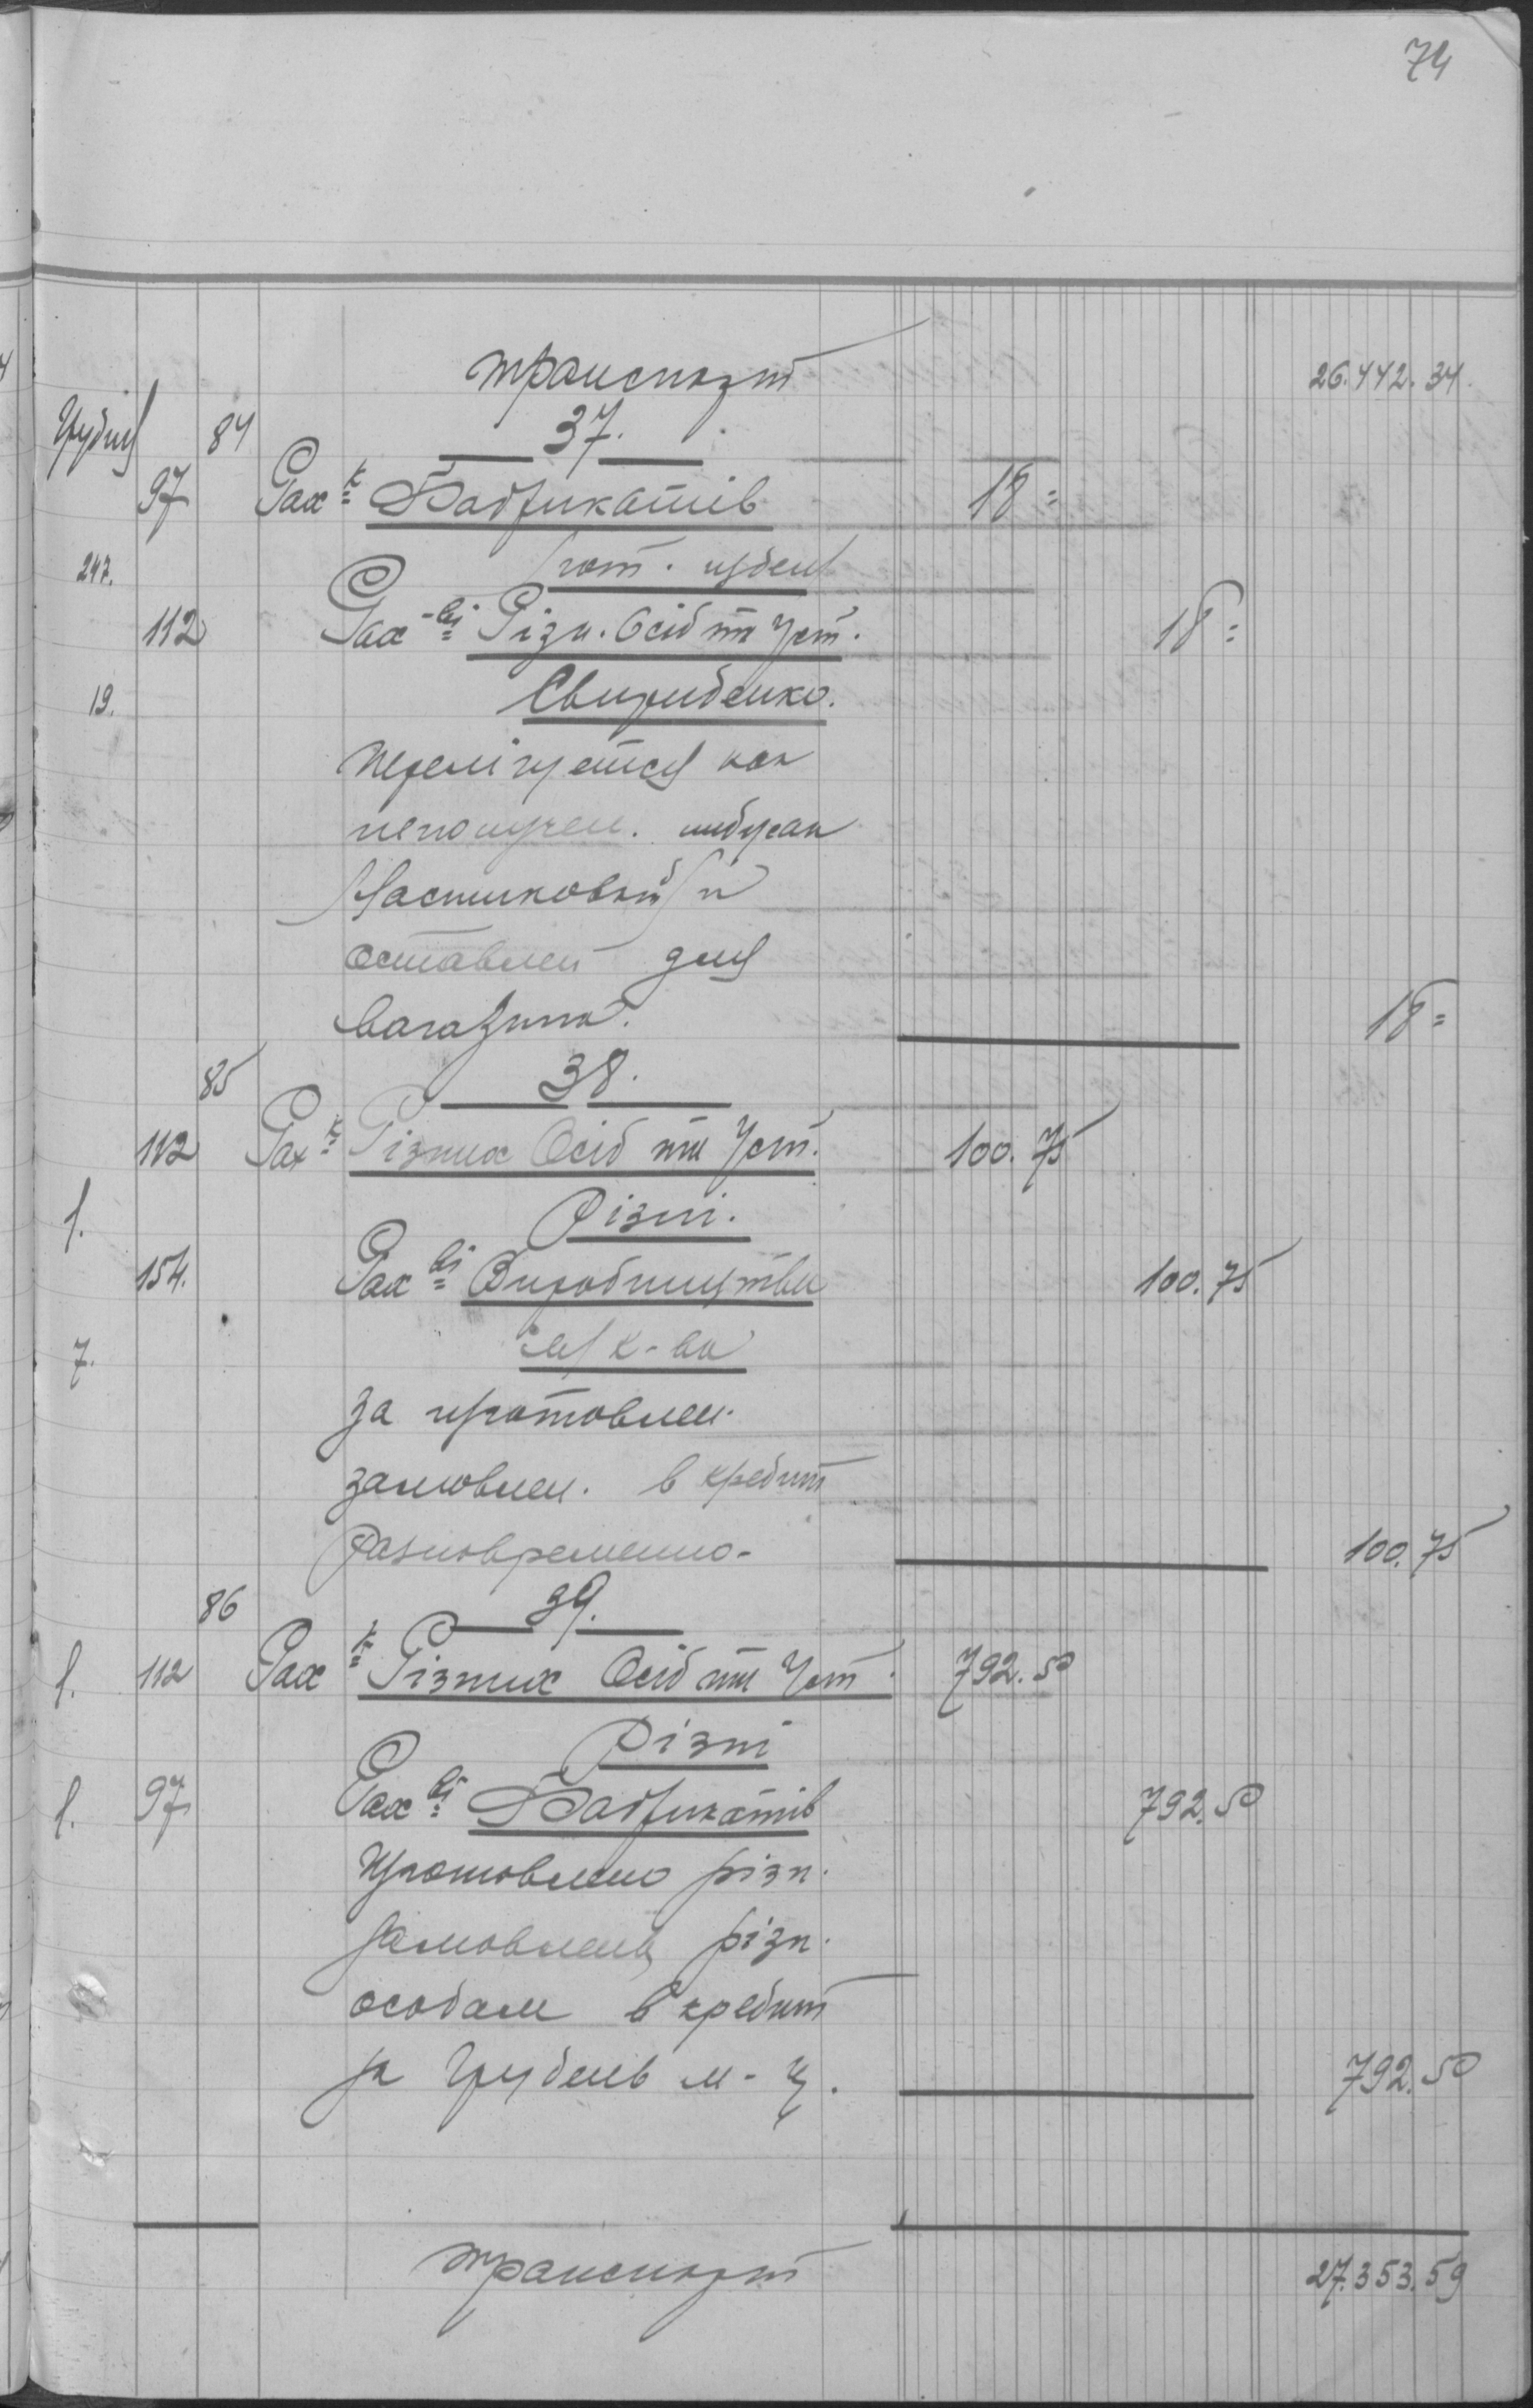 74
транспорт 26.442.34
Грудня 84 37.
97 Рах-к Фабрикатів 18=
247. гот. издел
112 Рах-ві Різн. Осіб та Уст. 18=
19. Свириденко.
как
неполучен.
и
оставлен для
магазина. 18=
85 38.
112 Рах-к Різних Осіб та Уст. 100.75
1. Різні.
154. Рах-ві Виробництва 100.75
7.
за изготовлен.
замовлен. в кредит
разновременно- 100.75
86 39.
1. 112 Рах-к Різних Осіб та Уст. 792.50
Різні
1. 97 Рах-ві Фабрикатів 792.50
Изготовлено різн.
замовлень різн.
особам в кредит
за Грудень м-ц. 792.50
транспорт 27.353.59